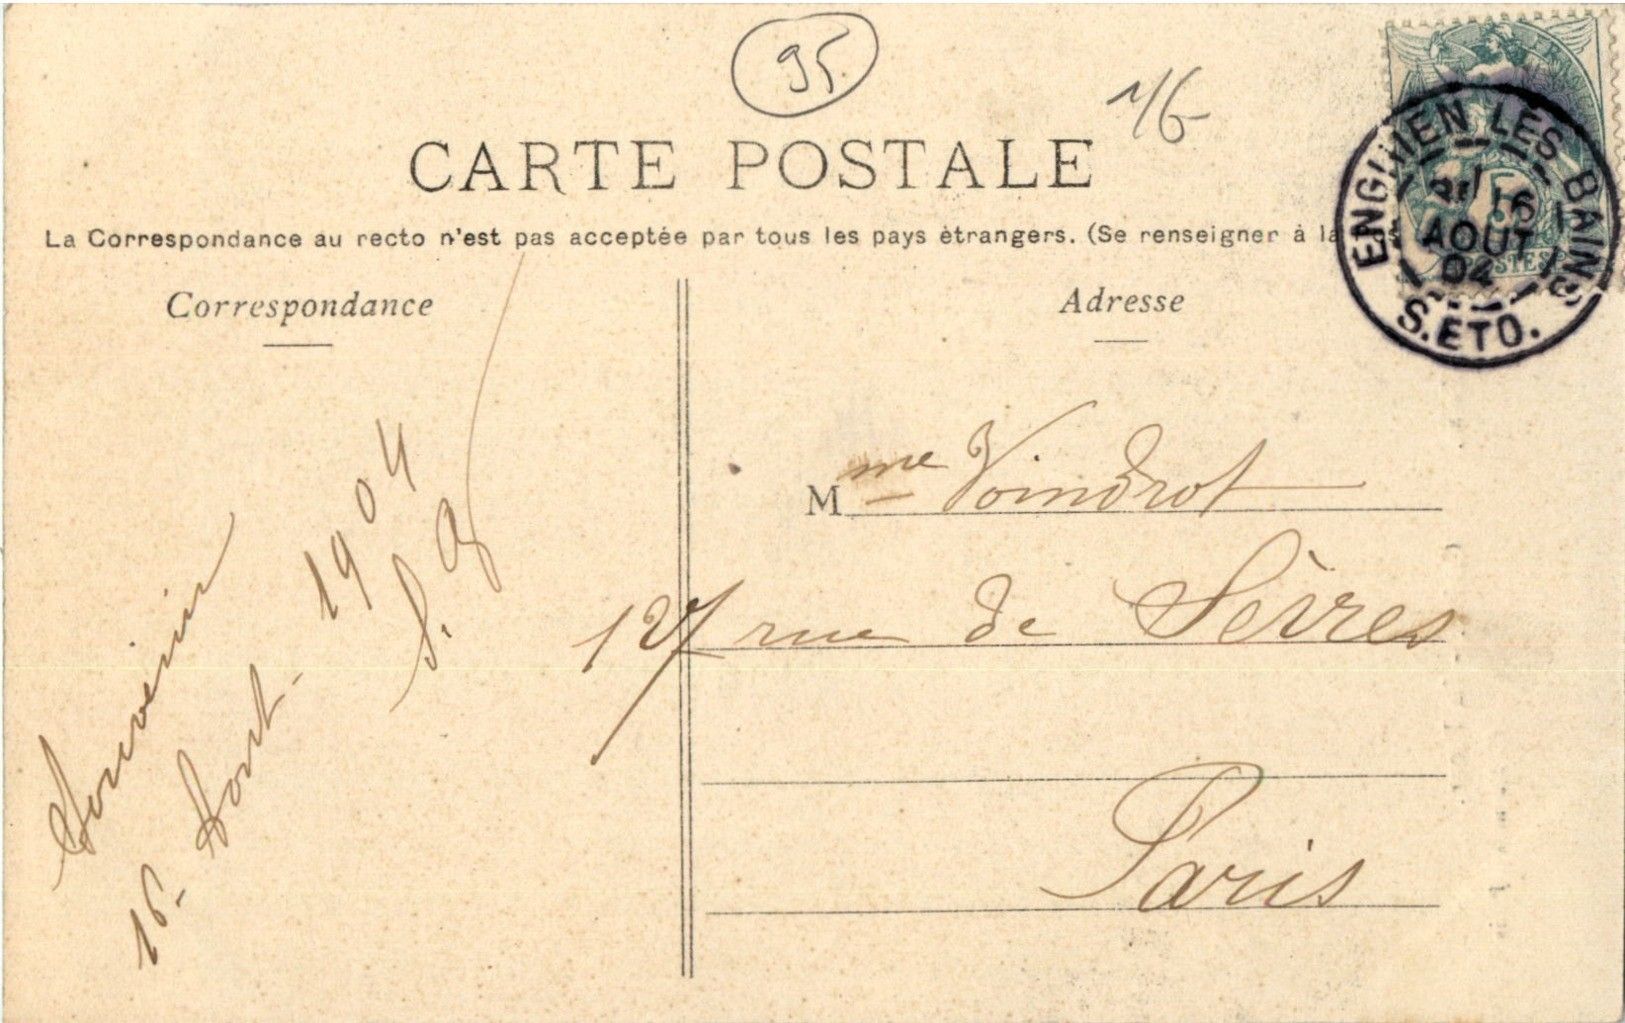 95
1/6-
CARTE POSTALE
La Correspondance au recto n'est pas acceptée par tous les pays étrangers. (Se renseigner à la
Correspondance
Adresse
ENGHIEN LES BAINS
16
AOUT
04
S. ETO.
5
POSTES
Souvenir
16 - Aout - 1904
Mme Voindrot
127 rue de Sèvres
Paris